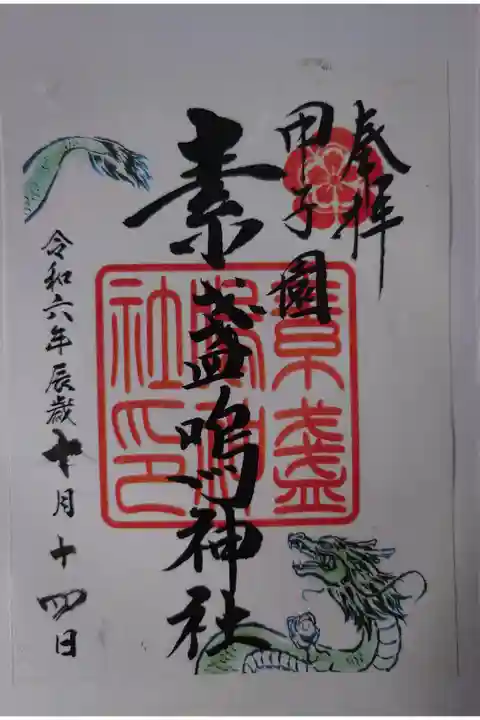 奉拝
甲子園
素盞嗚神社
令和六年辰歳十月十四日
素盞
嗚神
社印